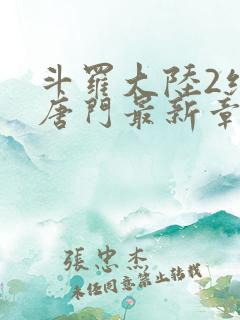 斗羅大陸2
唐門最新章
張忠杰
未经同意禁止转载